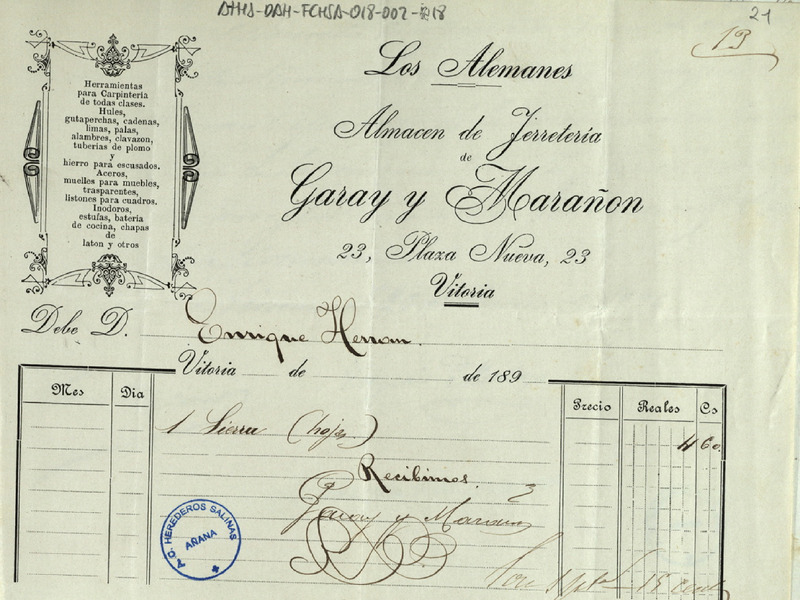 ATHA-DAH-FCHSA-018-002-18
21
13
Herramientas
para Carpinteria
de todas clases.
Hules,
gutaperchas, cadenas,
limas, palas,
alambres, clavazon,
tuberias de plomo
y
hierro para escusados.
Aceros,
muelles para muebles,
trasparentes,
listones para cuadros.
Inodoros,
estufas, bateria
de cocina, chapas
de
laton y otros
Los Alemanes
Almacen de Ferretería
de
Garay y Marañon
23, Plaza Nueva, 23
Vitoria
Debe D. Enrique Herran.
Vitoria de de 189
Mes Dia Precio Reales Cs
1 Sierra (hojas) 4 60
Recibimos.
Garay y Marañon
A.C. HEREDEROS SALINAS
AÑANA
Son 1 pta 15 cent